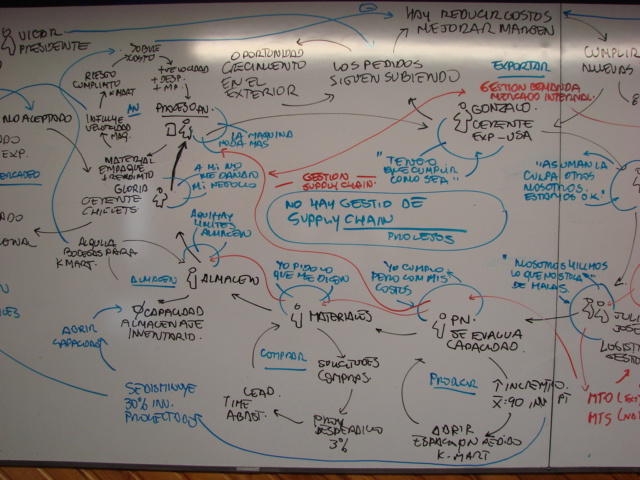 VICE
PRESIDENTE
SOBRE
COSTO
+VELOCIDAD
+DESP.
+MP
RIESGO
CUMPLIRLE
KMART
AN
INFLUYE
VELOCIDAD
MAQ.
PROCESO AN.
MATERIAL
EMPAQUE
+RENDIMTO
GLORIA
GERENTE
CHICLETS
NO ACEPTADO
EXP.
OPORTUNIDAD
CRECIMIENTO
EN EL
EXTERIOR
LOS PEDIDOS
SIGUEN SUBIENDO
HAY REDUCIR COSTOS
MEJORAR MARGEN
EXPORTAR
GESTION DEMANDA
MERCADO INTERNAL.
GONZALO
GERENTE
EXP-USA
CUMPLIR
NUEVAS
LA MAQUINA
NO DA MAS
A MI NO
ME DAÑAN
MI NEGOCIO
GESTION
SUPPLY CHAIN.
"TENGO
QUE CUMPLIR
COMO SEA"
"ASUMAN LA
CULPA OTROS
NOSOTROS
ESTAMOS OK"
NO HAY GESTIO DE
SUPPLY CHAIN
PROCESOS
AQUI HAY
LIMITES
ALMACEN
ALQUILA
BODEGAS PARA
K MART.
ALMACEN
ALMACEN
Ø CAPACIDAD
ALMACENAJE
INVENTARIO.
ABRIR
CAPACIDAD
YO PIDO LO
QUE ME DICEN
MATERIALES
YO CUMPLO
PERO CON MIS
COSTOS
PN.
SE EVALUA
CAPACIDAD.
LO QUE
DE MALAS."
JOSE
LOGISTICA
COMPRAR
SOLICITUDES
COMPRAS.
LEAD
TIME
ABAST.
DESPERDICIO
3%
PRODUCIR
↑ INCREMTO.
X:90
PT
ABRIR
K-MART
SE DISMINUYE
30% INV.
PROYECTADO
MTO
MTS